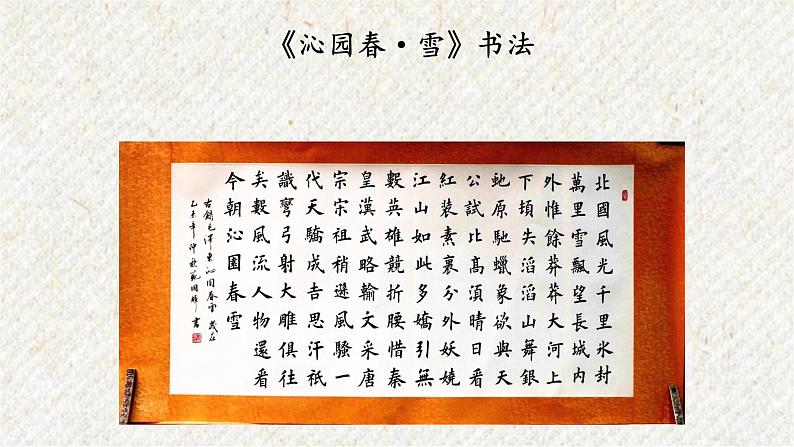 《沁园春·雪》书法
北國風光千里氷封
萬里雪飄望長城内
外惟餘莽莽大河上
下頓失滔滔山舞銀
虵原馳蠟象欲與天
公試比髙須晴日看
紅装素裹分外妖嬈
江山如此多嬌引無
數英雄競折腰惜秦
皇漢武略輸文采唐
宗宋祖稍遜風騷一
代天驕成吉思汗祇
識彎弓射大雕俱往
矣數風流人物還看
今朝沁園春雪
右録毛澤東沁園春雪歲在
乙未年仲秋範國書